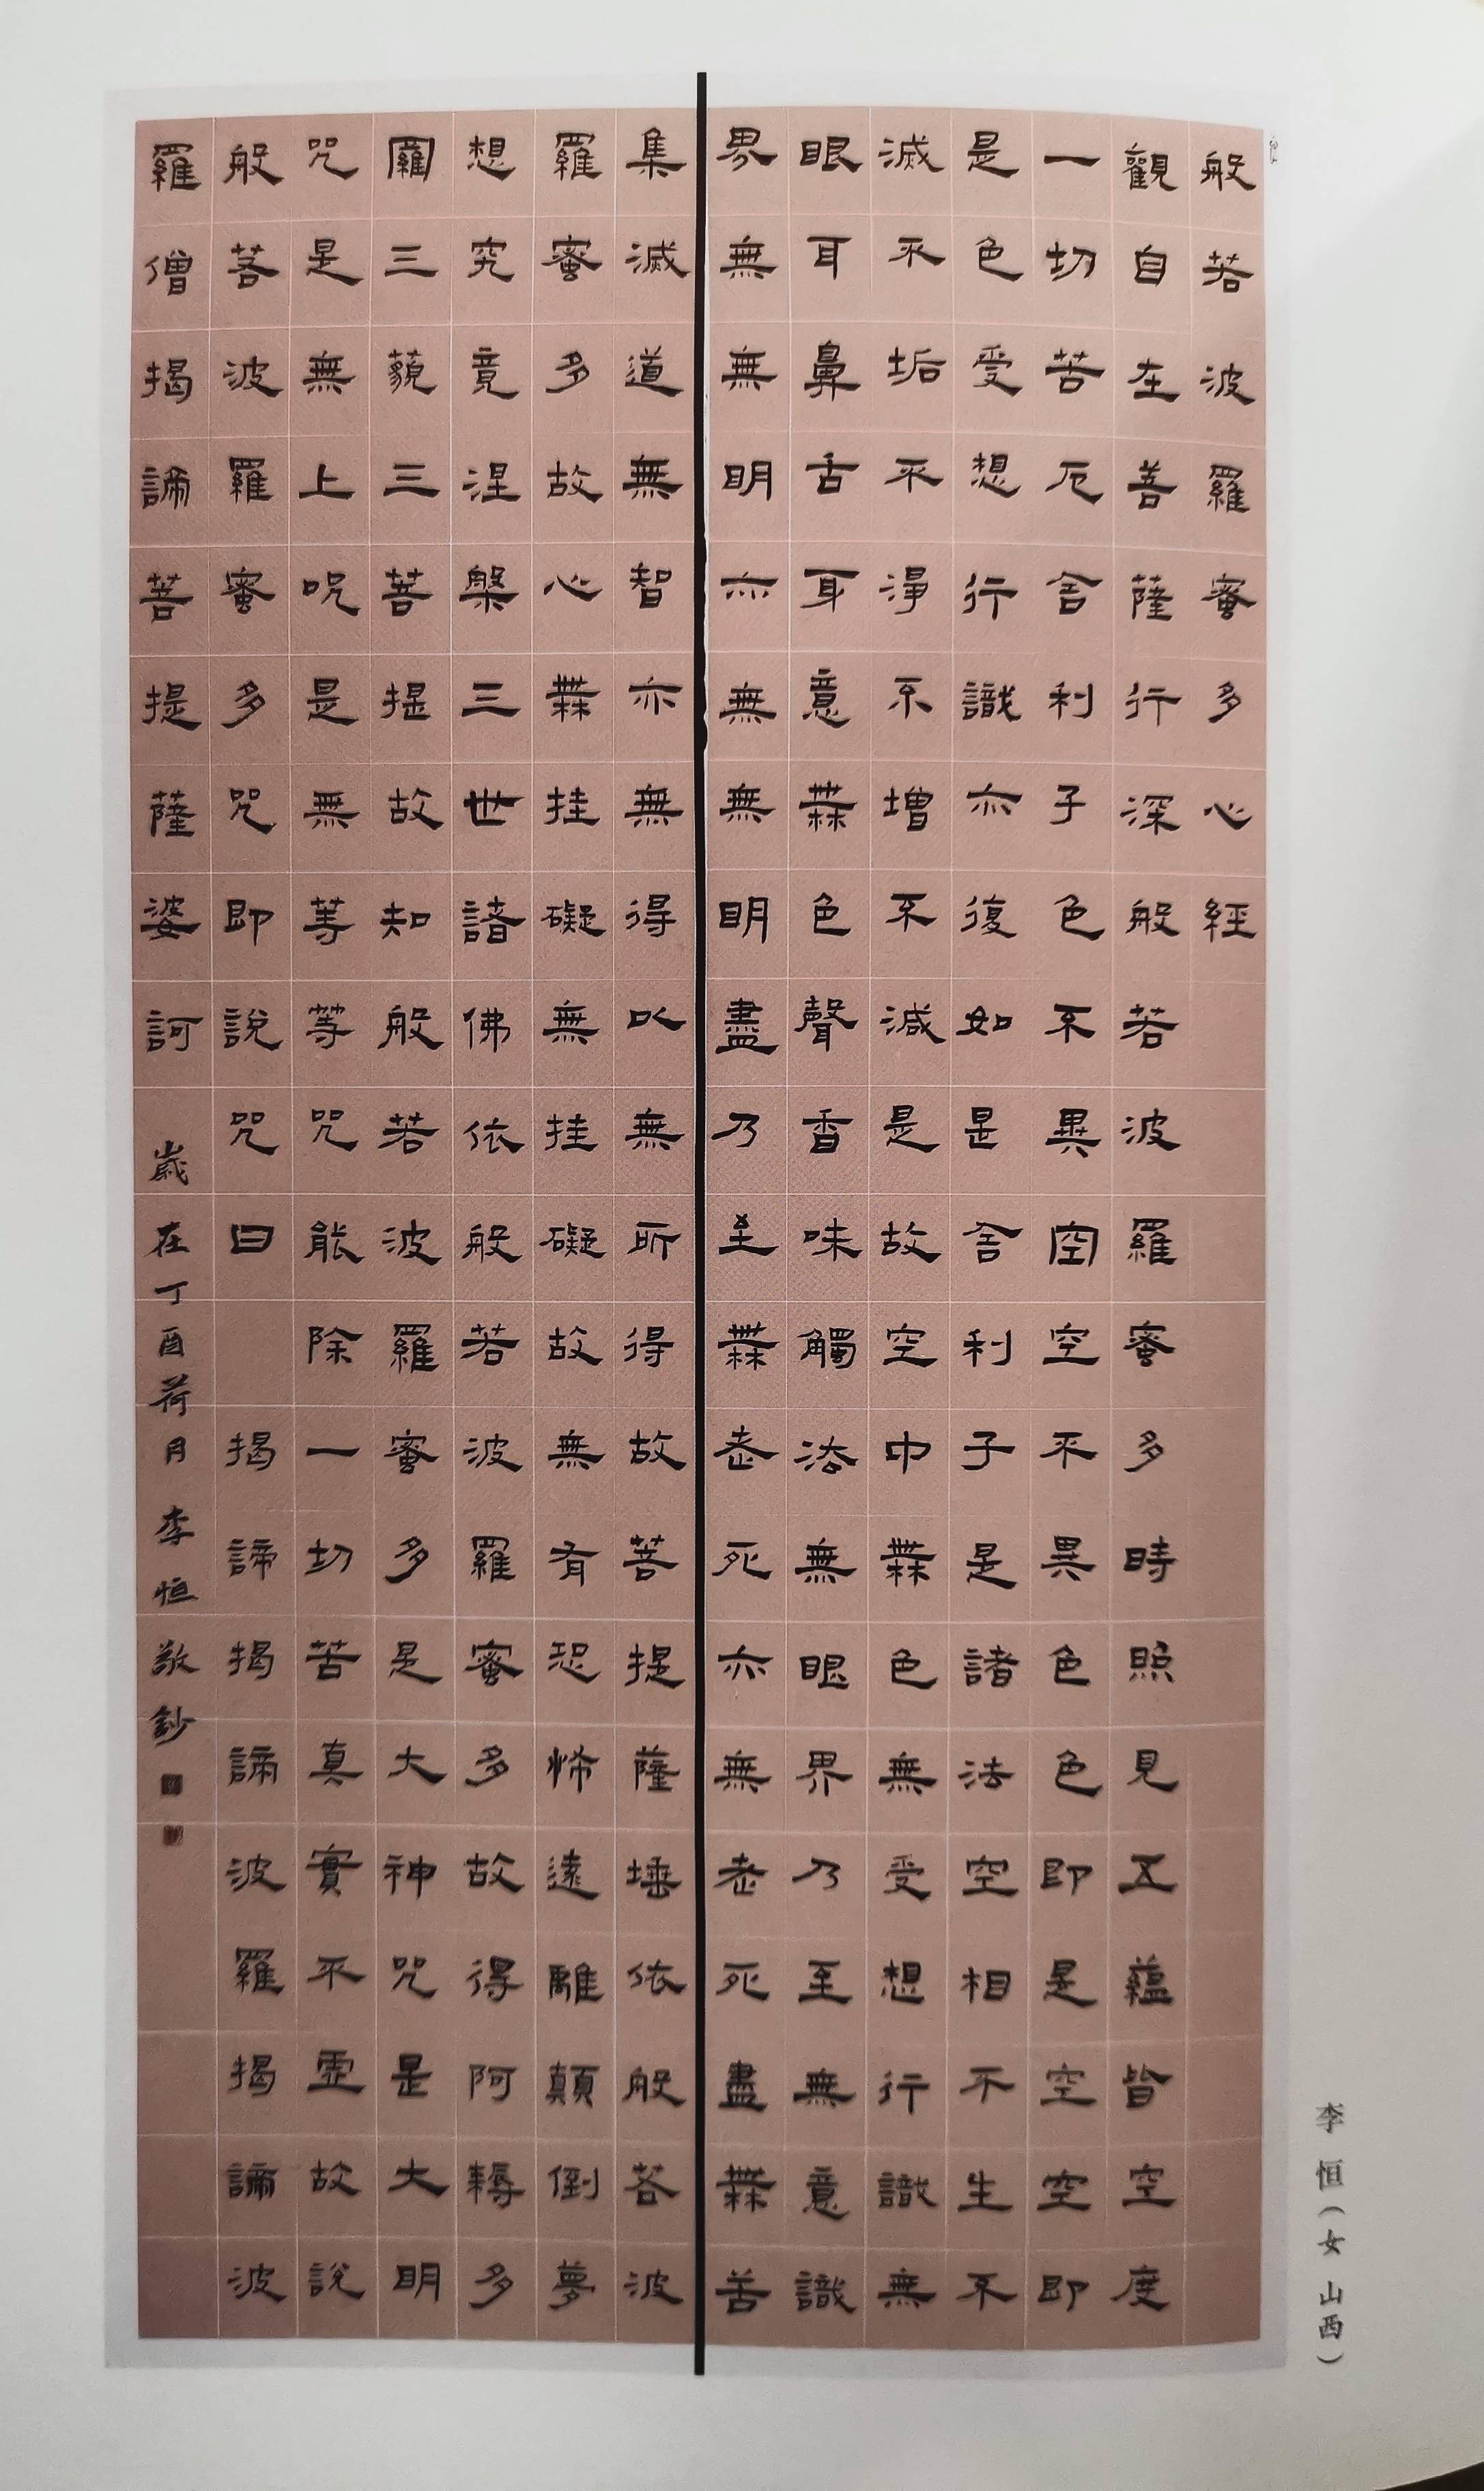 般若波羅蜜多心經
觀自在菩薩行深般若波羅蜜多時照見五蘊皆空度
一切苦厄舍利子色不異空空不異色色即是空空即
是色受想行識亦復如是舍利子是諸法空相不生不
滅不垢不淨不增不減是故空中無色無受想行識無
眼耳鼻舌身意無色聲香味觸法無眼界乃至無意識
界無無明亦無無明盡乃至無老死亦無老死盡無苦
集滅道無智亦無得以無所得故菩提薩埵依般若波
羅蜜多故心無挂礙無挂礙故無有恐怖遠離顛倒夢
想究竟涅槃三世諸佛依般若波羅蜜多故得阿耨多
羅三藐三菩提故知般若波羅蜜多是大神咒是大明
咒是無上咒是無等等咒能除一切苦真實不虛故說
般若波羅蜜多咒即說咒曰 揭諦揭諦波羅揭諦波
羅僧揭諦菩提薩婆訶 歲在丁酉荷月 李恒敬鈔
李恒（女 山西）